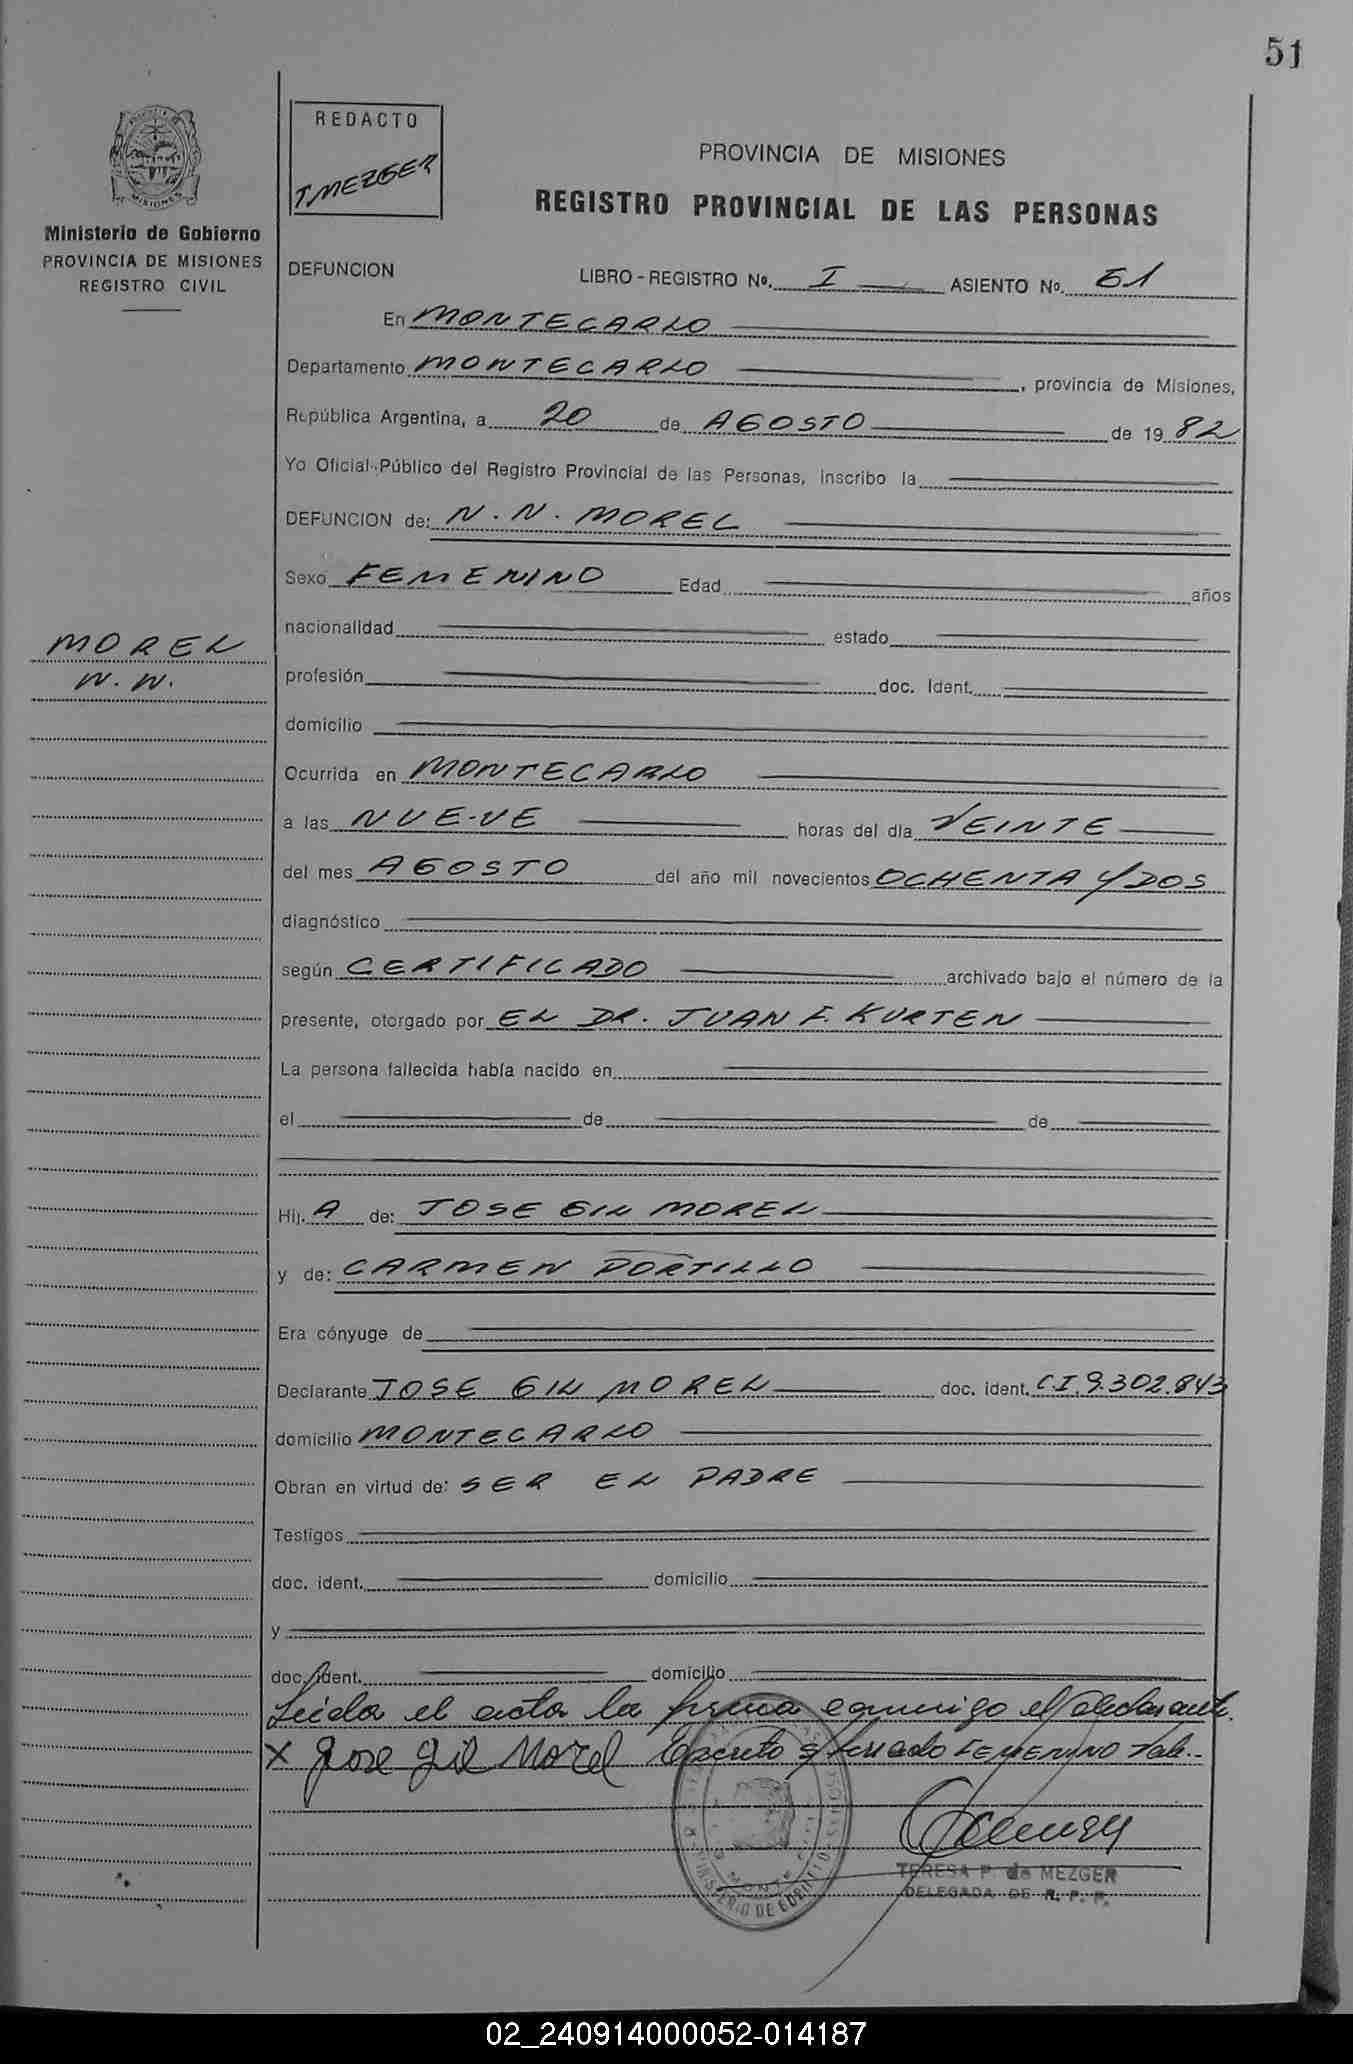 51
REDACTO
T. MEZGER
PROVINCIA DE MISIONES
REGISTRO PROVINCIAL DE LAS PERSONAS
MISIONES
Ministerio de Gobierno
PROVINCIA DE MISIONES
REGISTRO CIVIL
DEFUNCION LIBRO-REGISTRO Nº. I ASIENTO Nº. 51
En MONTECARLO
Departamento MONTECARLO, provincia de Misiones,
República Argentina, a 20 de AGOSTO de 19 82
Yo Oficial Público del Registro Provincial de las Personas, inscribo la
DEFUNCION de: N. N. MOREL
Sexo FEMENINO Edad años
nacionalidad estado
MOREL
N. N.
profesión doc. Ident.
domicilio
Ocurrida en MONTECARLO
a las NUEVE horas del día VEINTE
del mes AGOSTO del año mil novecientos OCHENTA Y DOS
diagnóstico
según CERTIFICADO archivado bajo el número de la
presente, otorgado por EL DR. JUAN F. KURTEN
La persona fallecida había nacido en
el de de
Hij. A de: JOSE GIL MOREL
y de: CARMEN PORTILLO
Era cónyuge de
Declarante JOSE GIL MOREL doc. ident. C.I. 9.302.843
domicilio MONTECARLO
Obran en virtud de: SER EL PADRE
Testigos
doc. ident. domicilio
y
doc. ident. domicilio
Leida el acta la firma conmigo el declarante.
X Jose Gil Morel Escrito s/ borrado FEMENINO Vale.-
TERESA P. de MEZGER
DELEGADA DE R. P. P.
MINISTERIO DE GOBIERNO
02_240914000052-014187